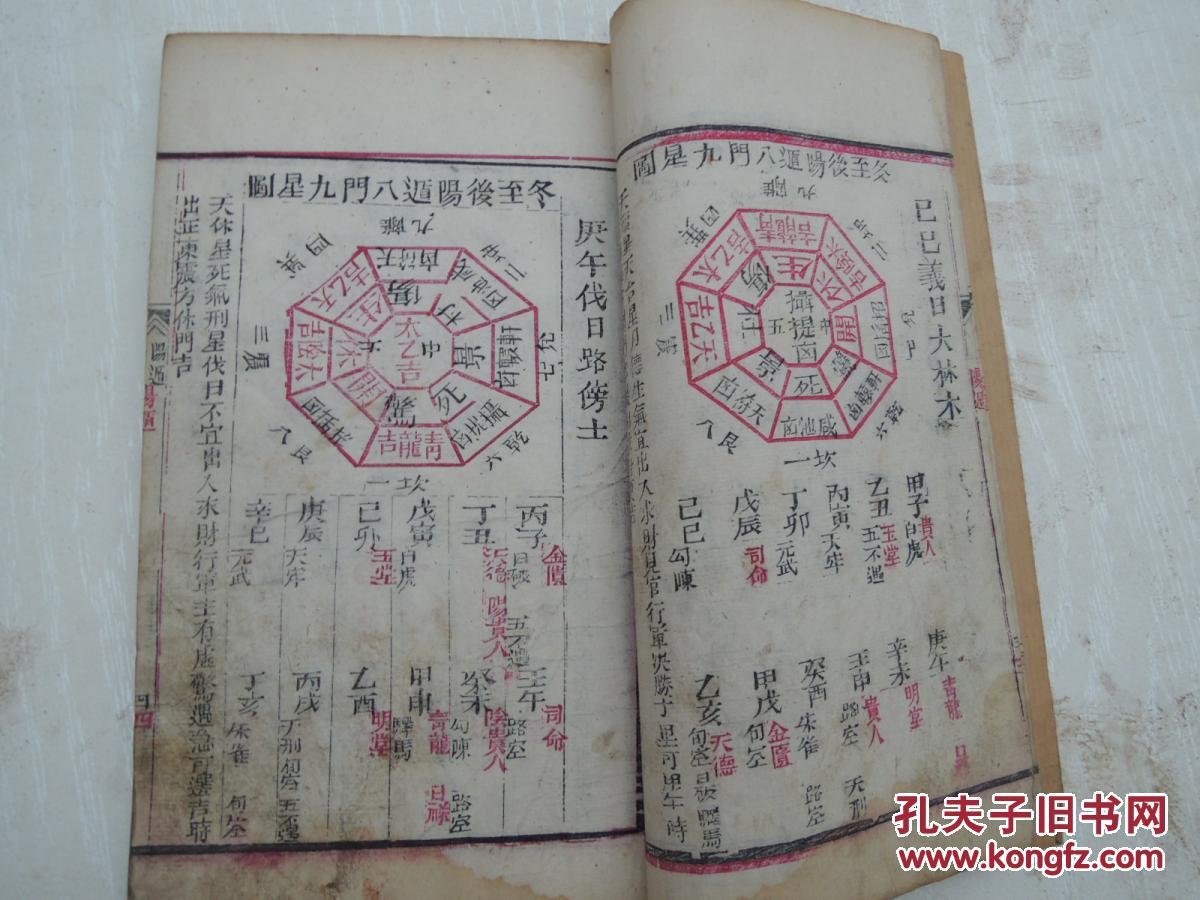 己巳義日大林木
冬至後陽遁八門九星圖
九離
二坤
四巽
三震
兌七
八艮
六乾
一坎
青龍吉
太乙吉
天乙吉
天符凶
咸池凶
軒轅凶
生
傷
杜
景
死
驚
開
休
五中
攝提凶
甲子貴人白虎
乙丑玉堂五不遇
丙寅天牢
丁卯元武
戊辰司命
己巳勾陳
庚午青龍
辛未明堂
壬申貴人路空天刑
癸酉朱雀路空
甲戌金匱旬空
乙亥天德旬空日破驛馬
陽遁
庚午伐日路傍土
冬至後陽遁八門九星圖
九離
二坤
四巽
三震
兌七
八艮
六乾
一坎
天符凶
咸池凶
軒轅凶
攝提凶
青龍吉
太陰吉
太乙吉
傷
杜
景
死
驚
開
休
生
五中
丙子金匱日破
丁丑天德陽貴人
戊寅白虎
己卯玉堂
庚辰天牢
辛巳元武
壬午司命路空
癸未陰貴人勾陳路空
甲申青龍日祿驛馬
乙酉明堂
丙戌天刑旬空五不遇
丁亥朱雀旬空
天休星死氣刑星伐日不宜出入求財行軍主有虛驚遇急可選吉時
出正東震方休門吉
陽遁
四
孔夫子旧书网
www.kongfz.com